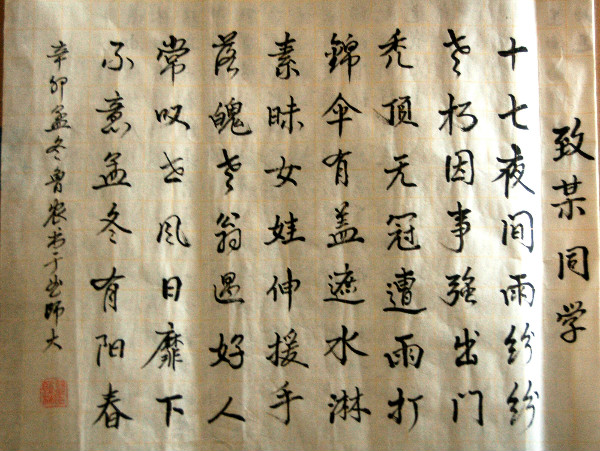 致某同学
十七夜间雨纷纷
老朽因事強出门
秃頂无冠遭雨打
錦伞有盖遮水淋
素昧女娃伸援手
落魄老翁遇好人
常叹世风日靡下
不意孟冬有阳春
辛卯孟冬鲁农书于曲师大